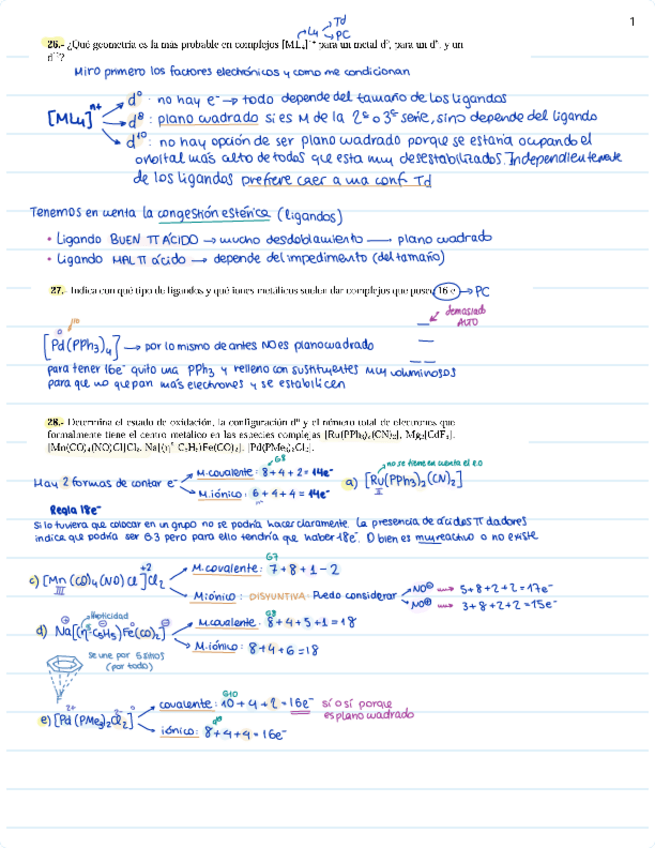 1
Td
L4
PC
26.- ¿Qué geometría es la más probable en complejos [ML4]n+ para un metal d0, para un d8, y un
d10?
Miro primero los factores electrónicos y como me condicionan
[ML4]n+
d0: no hay e- → todo depende del tamaño de los ligandos
d8: plano cuadrado si es M de la 2ª o 3ª serie, sino depende del ligando
d10: no hay opción de ser plano cuadrado porque se estaría ocupando el
orbital más alto de todos que esta muy desestabilizados. Independientemente
de los ligandos prefiere caer a una conf Td
Tenemos en cuenta la congestión estérica (ligandos)
• Ligando BUEN π ÁCIDO → mucho desdoblamiento — plano cuadrado
• Ligando MAL π ácido → depende del impedimento (del tamaño)
27.- Indica con qué tipo de ligandos y qué iones metálicos suelen dar complejos que posean 16 e- → PC
demasiado
ALTO
[Pd(PPh3)4] → por lo mismo de antes NO es planocuadrado
para tener 16e- quito una PPh3 y relleno con sustituyentes MUY voluminosos
para que no quepan más electrones y se estabilicen
28.- Determina el estado de oxidación, la configuración dn y el número total de electrones que
formalmente tiene el centro metálico en las especies complejas [Ru(PPh3)2(CN)2], Mg2[CdF6],
[Mn(CO)4(NO)Cl]Cl2, Na[(η5-C5H5)Fe(CO)2], [Pd(PMe3)2Cl2].
G8
Hay 2 formas de contar e-
M. covalente: 8+4+2 = 14e-
M. iónico: 6+4+4 = 14e-
no se tiene en cuenta el e.o
a) [Ru(PPh3)2(CN)2]
II
Regla 18e-
Si lo tuviera que colocar en un grupo no se podría hacer claramente. La presencia de ácidos π dadores
indica que podría ser G3 pero para ello tendría que haber 18e-. O bien es muy reactivo o no existe
G7
c) [Mn(CO)4(NO)Cl]+2Cl2
III
M. covalente: 7+8+1-2
M. iónico: DISYUNTIVA. Puedo considerar
NO⊕ → 5+8+2+2=17e-
NO⊖ → 3+8+2+2=15e-
Hapticidad
G8
d) Na[(η5-C5H5)Fe(CO)2]
M. covalente: 8+4+5+1=18
M. iónico: 8+4+6=18
se une por 5 sitios
(por todo)
F
G10
e) [Pd(PMe3)2Cl2]
2+
covalente: 10+4+2=16e- sí o sí porque
es plano cuadrado
d8
iónico: 8+4+4=16e-